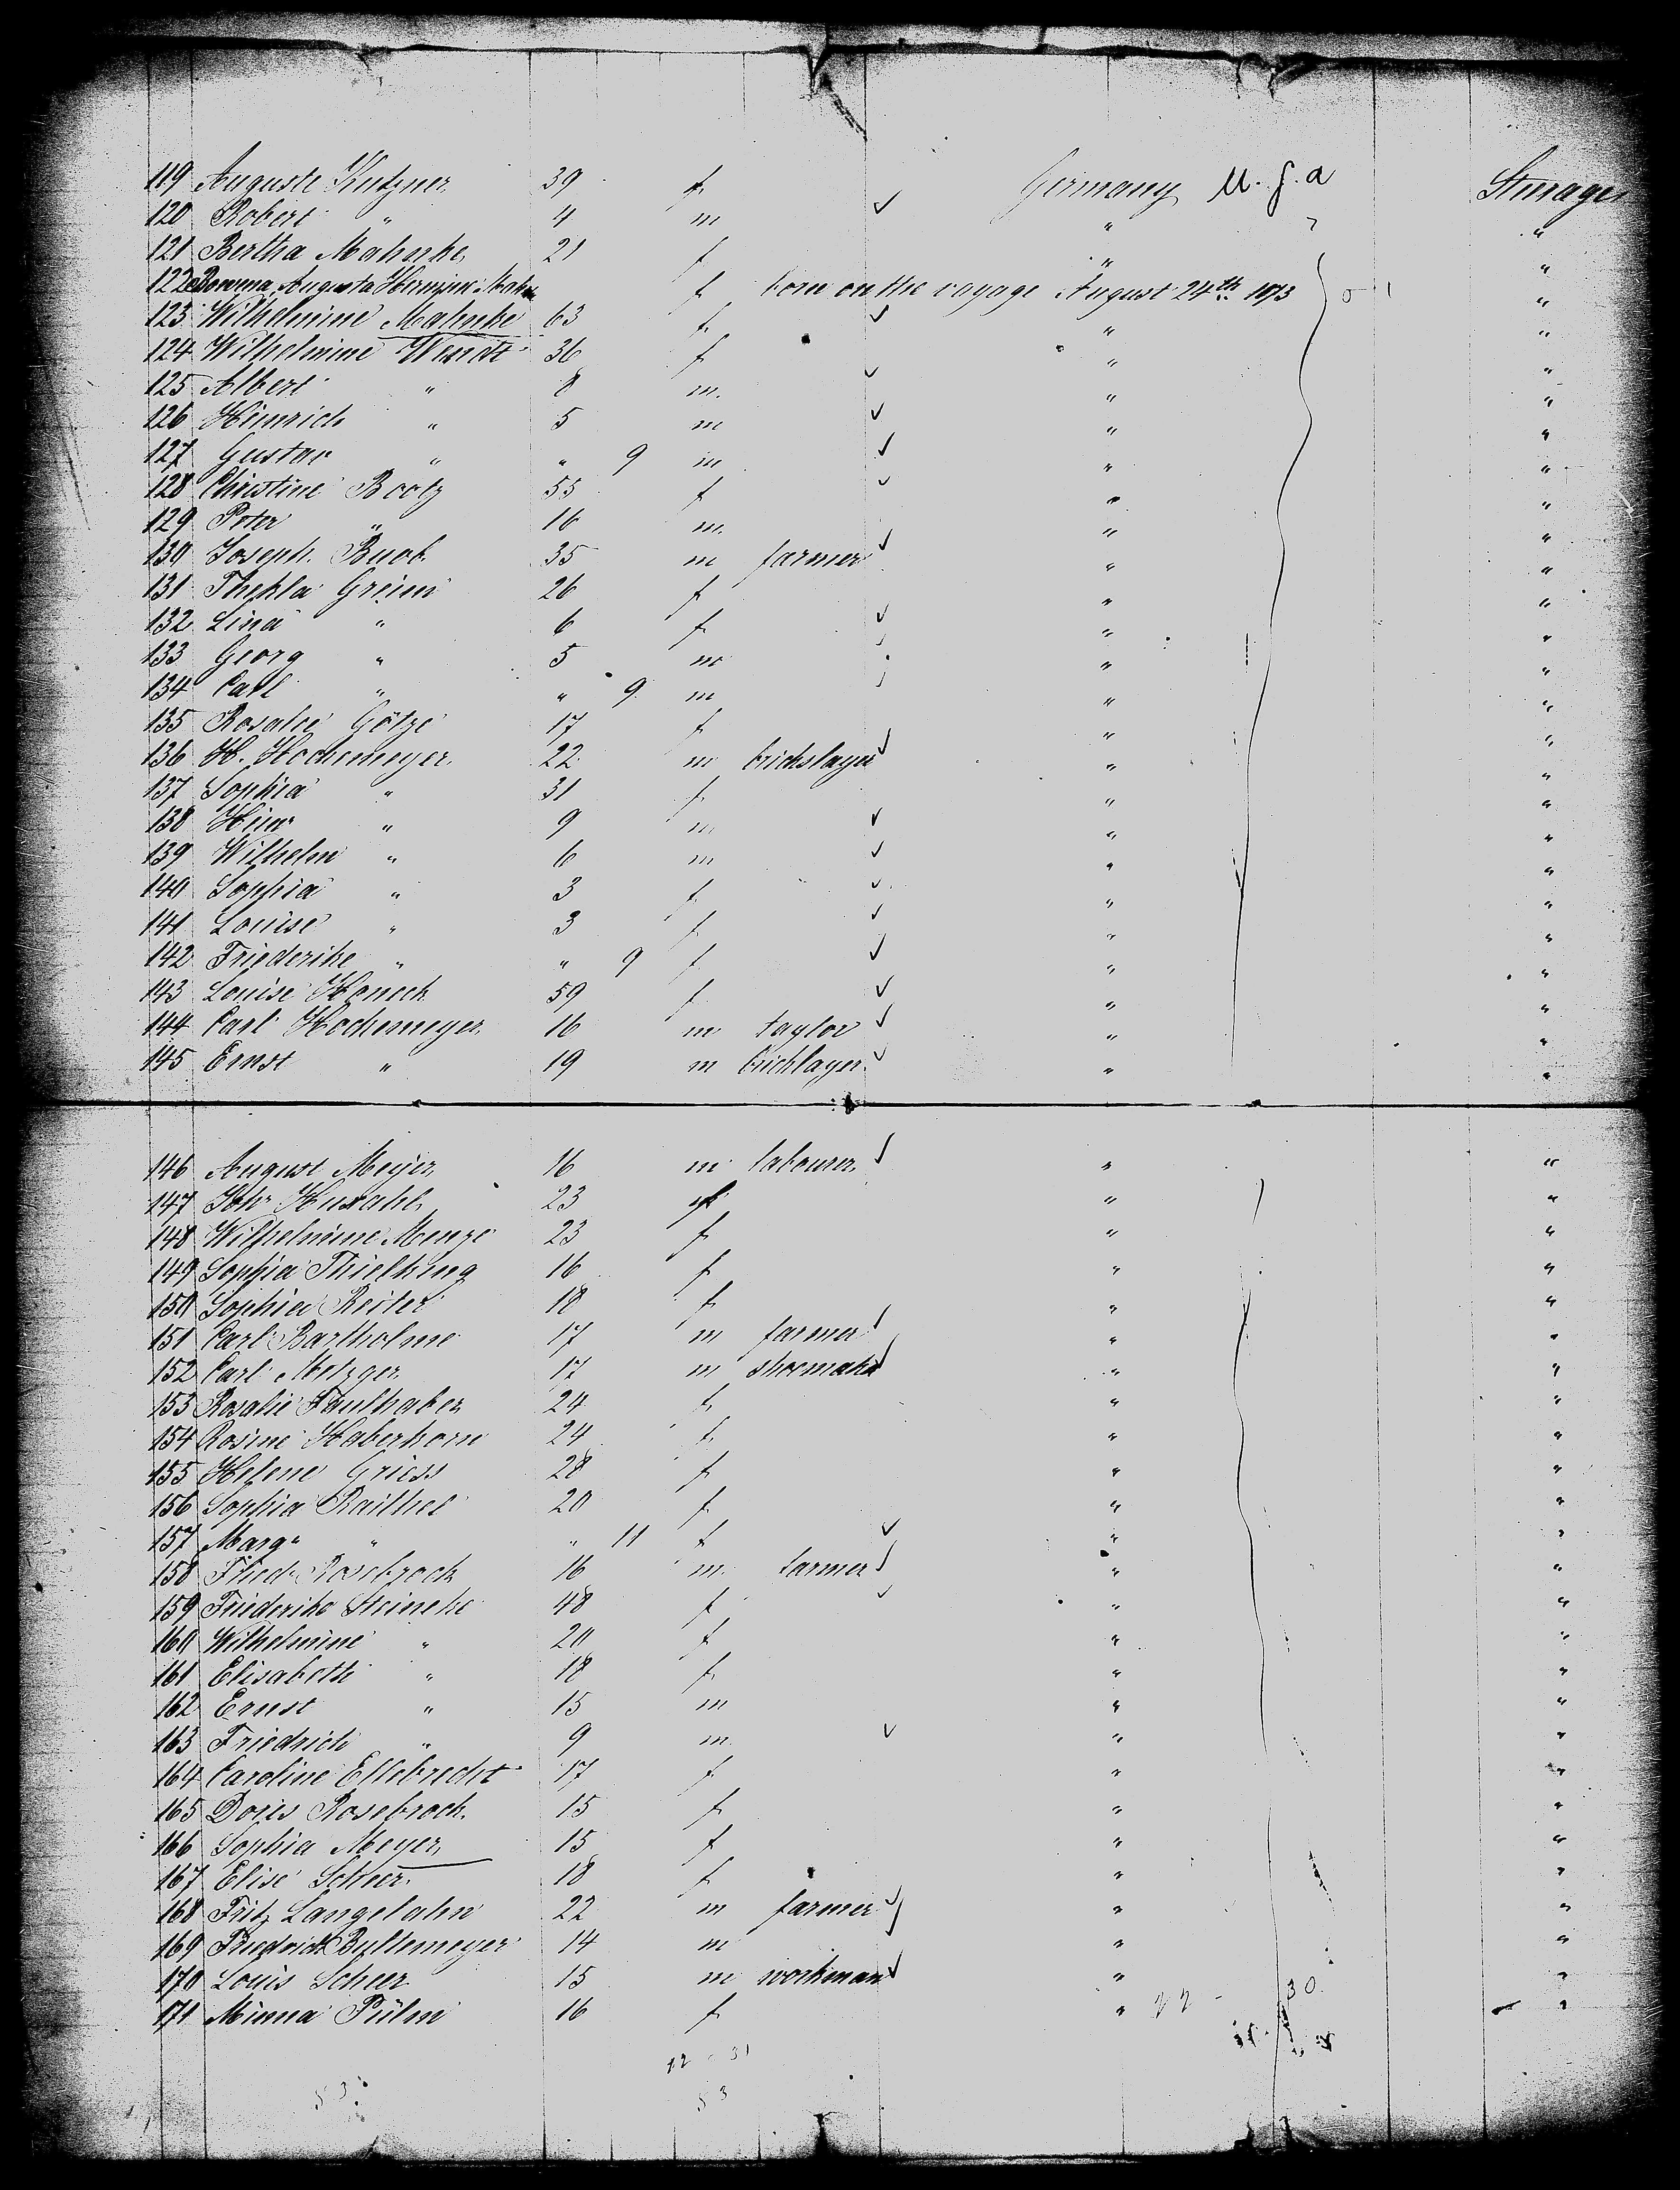 119 Auguste Kutzner 39 f Germany U.S.a Sterage
120 Robert " 4 m " "
121 Bertha Mahnke 21 f " "
122 Rowena Augusta Hermine Mahn f born on the voyage August 24th 1873 "
123 Wilhelmine Mahnke 63 f " "
124 Wilhelmine Wendt 36 f " "
125 Albert " 8 m " "
126 Heinrich " 5 m " "
127 Gustav " " 9 m " "
128 Christine Bootz 55 f " "
129 Peter " 16 m " "
130 Joseph Buob 35 m farmer " "
131 Thekla Greim 26 f " "
132 Lina " 6 f " "
133 Georg " 5 m " "
134 Carl " " 9 m " "
135 Rosalie Götze 17 f " "
136 H. Hochemeyer 22 m brickslayer " "
137 Sophia " 31 f " "
138 Hinr " 9 m " "
139 Wilhelm " 6 m " "
140 Sophia " 3 f " "
141 Louise " 3 f " "
142 Friederike " " 9 f " "
143 Louise Honeck 59 f " "
144 Carl Hochemeyer 16 m taylor " "
145 Ernst " 19 m bricklayer " "
146 August Meyer 16 m labourer " "
147 Joh. 23 f " "
148 Wilhelmine Menze 23 f " "
149 Sophia Thielking 16 f " "
150 Sophia Reiter 18 f " "
151 Carl Bartholme 17 m farmer " "
152 Carl Metzger 17 m shoemaker " "
153 Rosalie Faulhaber 24 f " "
154 Rosine Haberhorn 24 f " "
155 Helene Griess 28 f " "
156 Sophia Raithel 20 f " "
157 Marg. " " 11 f " "
158 Fried. Rosebrock 16 m farmer " "
159 Friederike Steineke 48 f " "
160 Wilhelmine " 20 f " "
161 Elisabeth " 18 f " "
162 Ernst " 15 m " "
163 Friedrich " 9 m " "
164 Caroline Ellebrecht 17 f " "
165 Doris Rosebrock 15 f " "
166 Sophia Meyer 15 f " "
167 Elise Scheer 18 f " "
168 Fritz Langelahn 22 m farmer " "
169 Friedrich Bultemeyer 14 m " "
170 Louis Scheer 15 m workman " "
171 Minna Pülm 16 f " 22 - 30 "
22 31
53 53